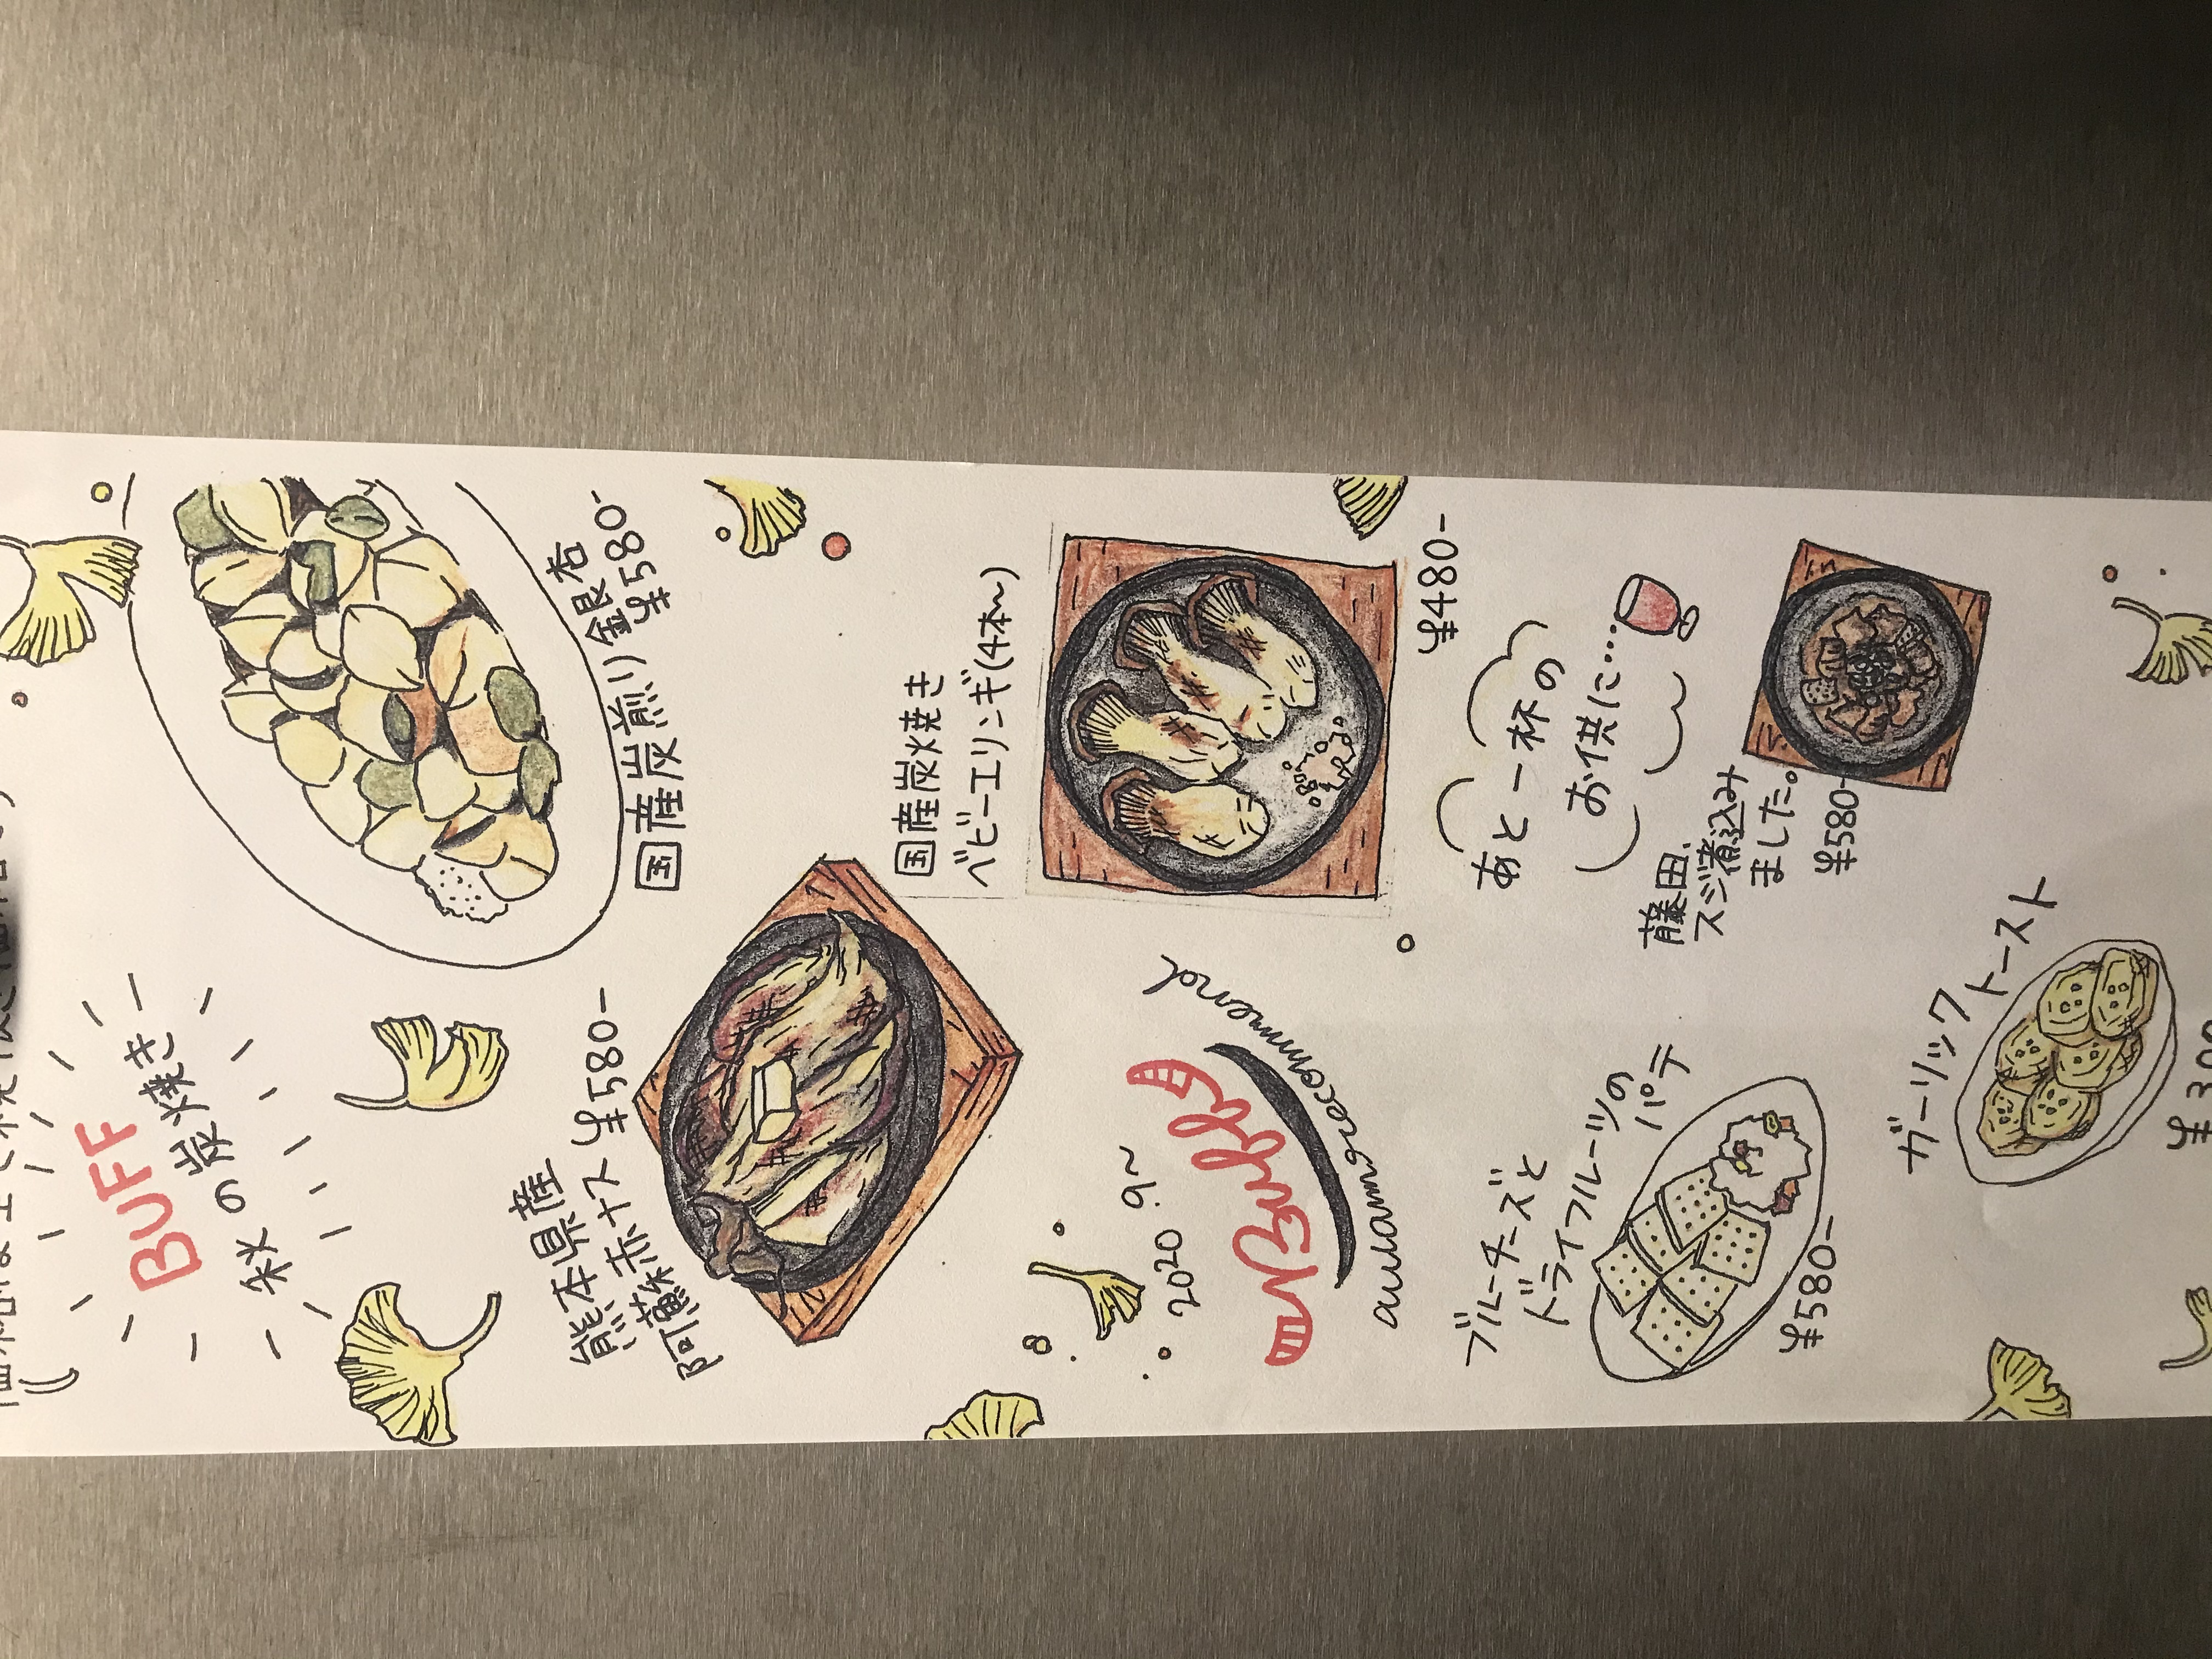 BUFF
秋の炭焼き
国産炭煎り銀杏
¥580-
熊本県産
阿蘇赤ナス ¥580-
国産炭火焼き
ベビーエリンギ(4本〜)
¥480-
2020 9〜
Buff
autumn recommend
あと一杯の
お供に…
藤田、
スジ煮込み
ました。
¥580-
ブルーチーズと
ドライフルーツの
パテ
¥580-
ガーリック
トースト